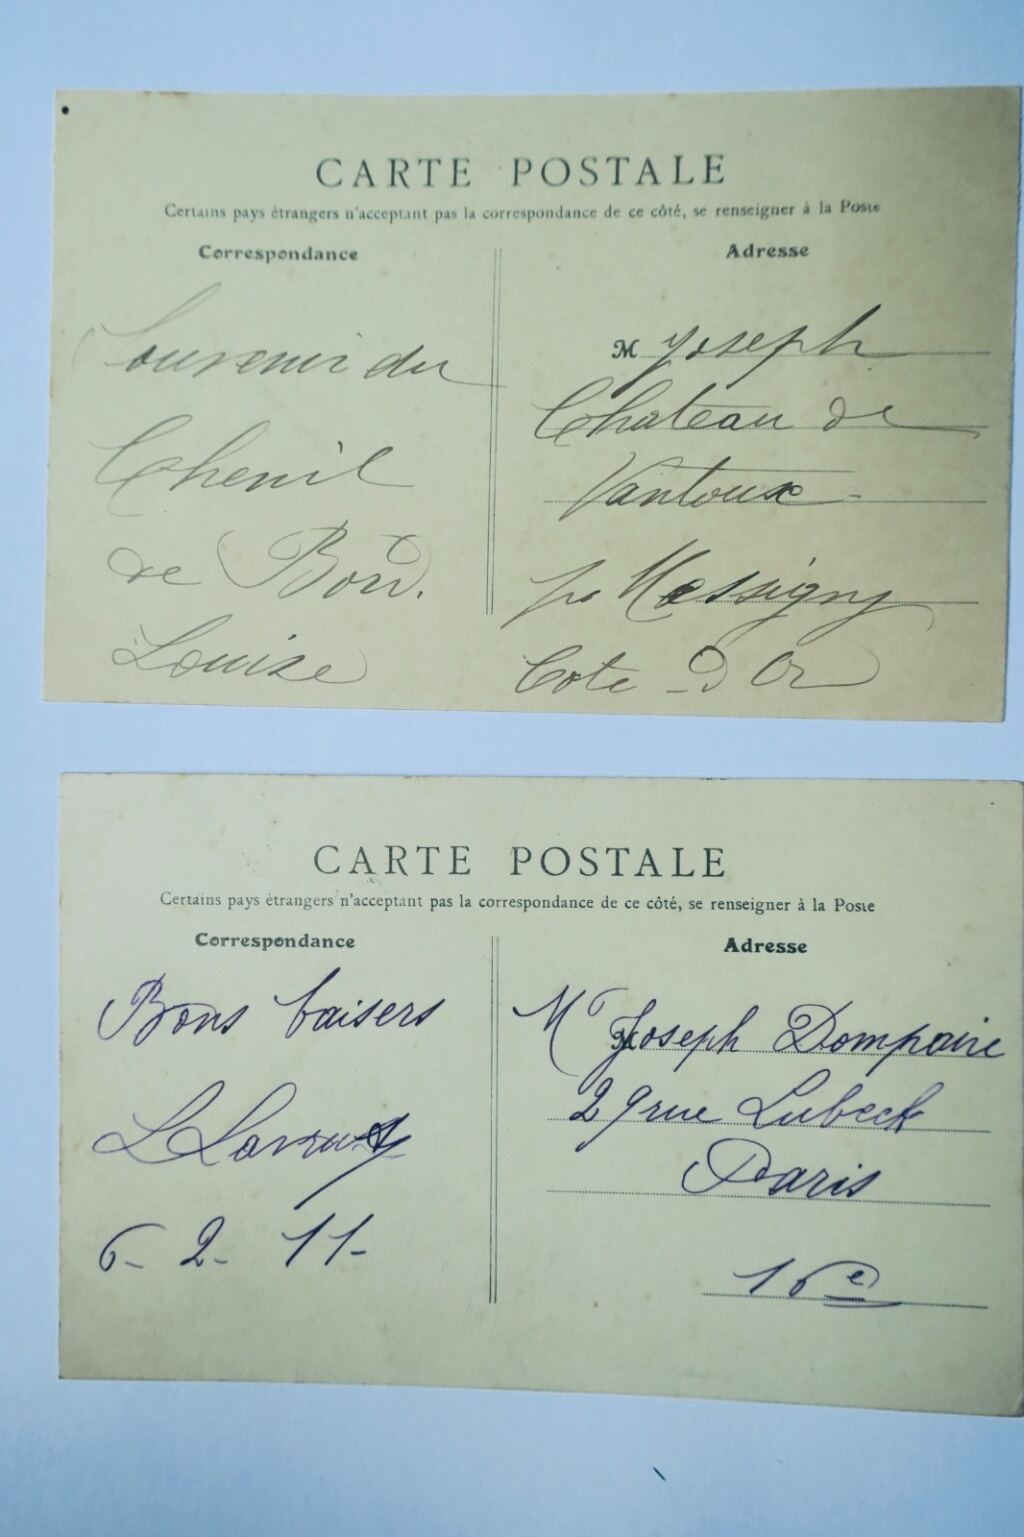 CARTE POSTALE
Certains pays étrangers n'acceptant pas la correspondance de ce côté, se renseigner à la Poste
Correspondance
Souvenir du
Chenil
de
Louise
Adresse
M Joseph
Chateau de
Vantoux -
pr Messigny
Cote D Or
CARTE POSTALE
Certains pays étrangers n'acceptant pas la correspondance de ce côté, se renseigner à la Poste
Correspondance
Bons baisers
6- 2- 11-
Adresse
Mr Joseph Dompaire
29 rue Lubeck
Paris
16e